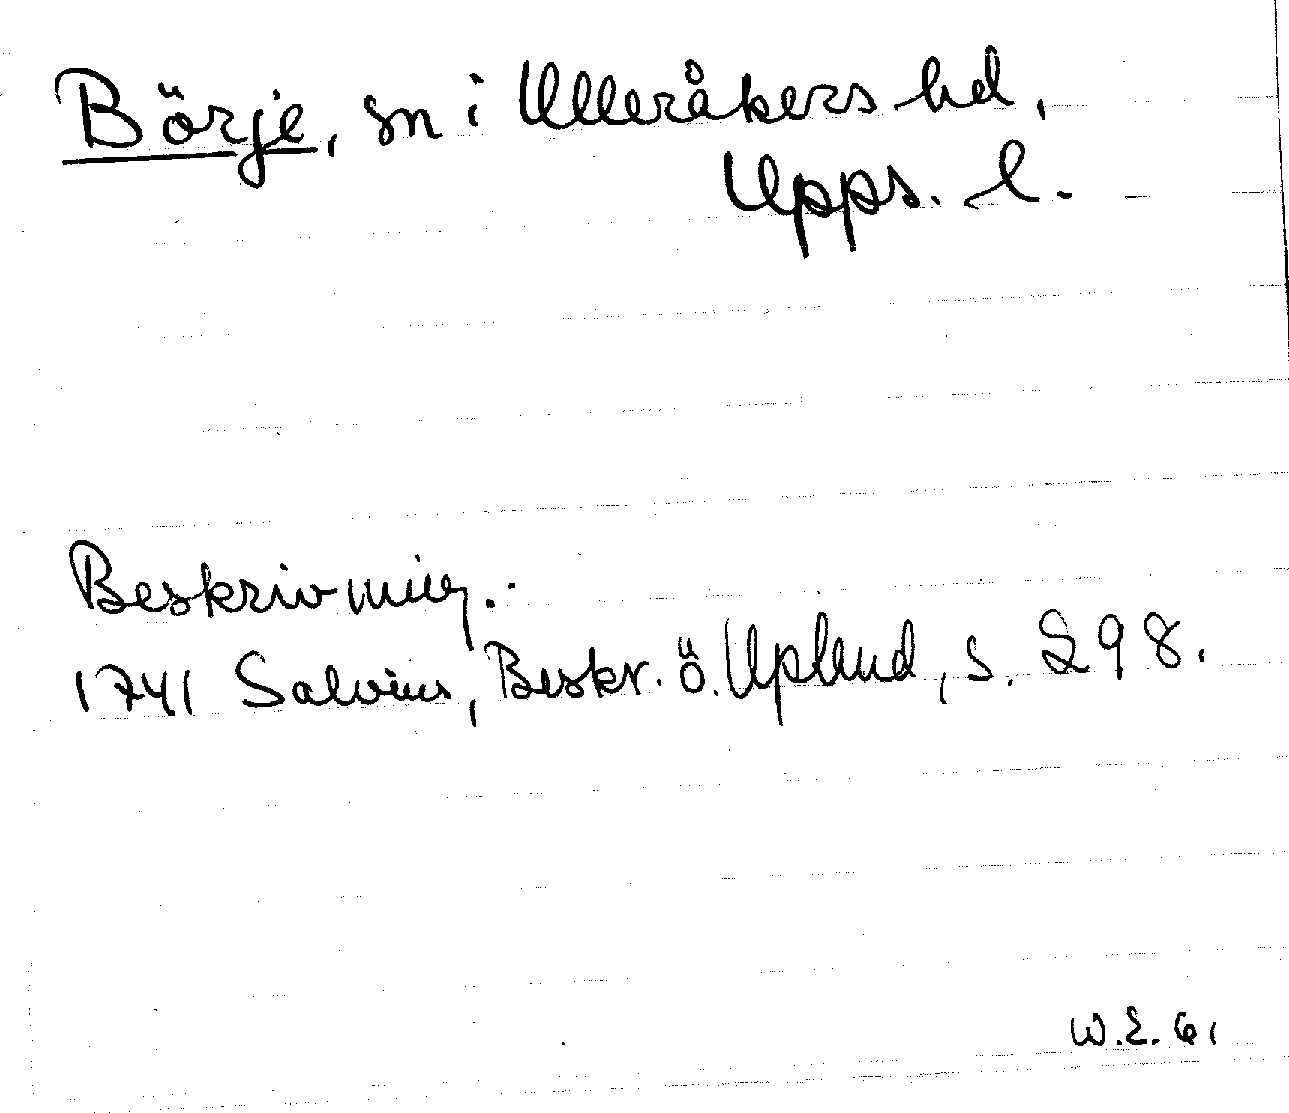 Börje, sn i Ulleråkers hd,
Upps. l.
Beskrivning.
1741 Salvius, Beskr. ö. Upland, s. 298.
W.E. 61